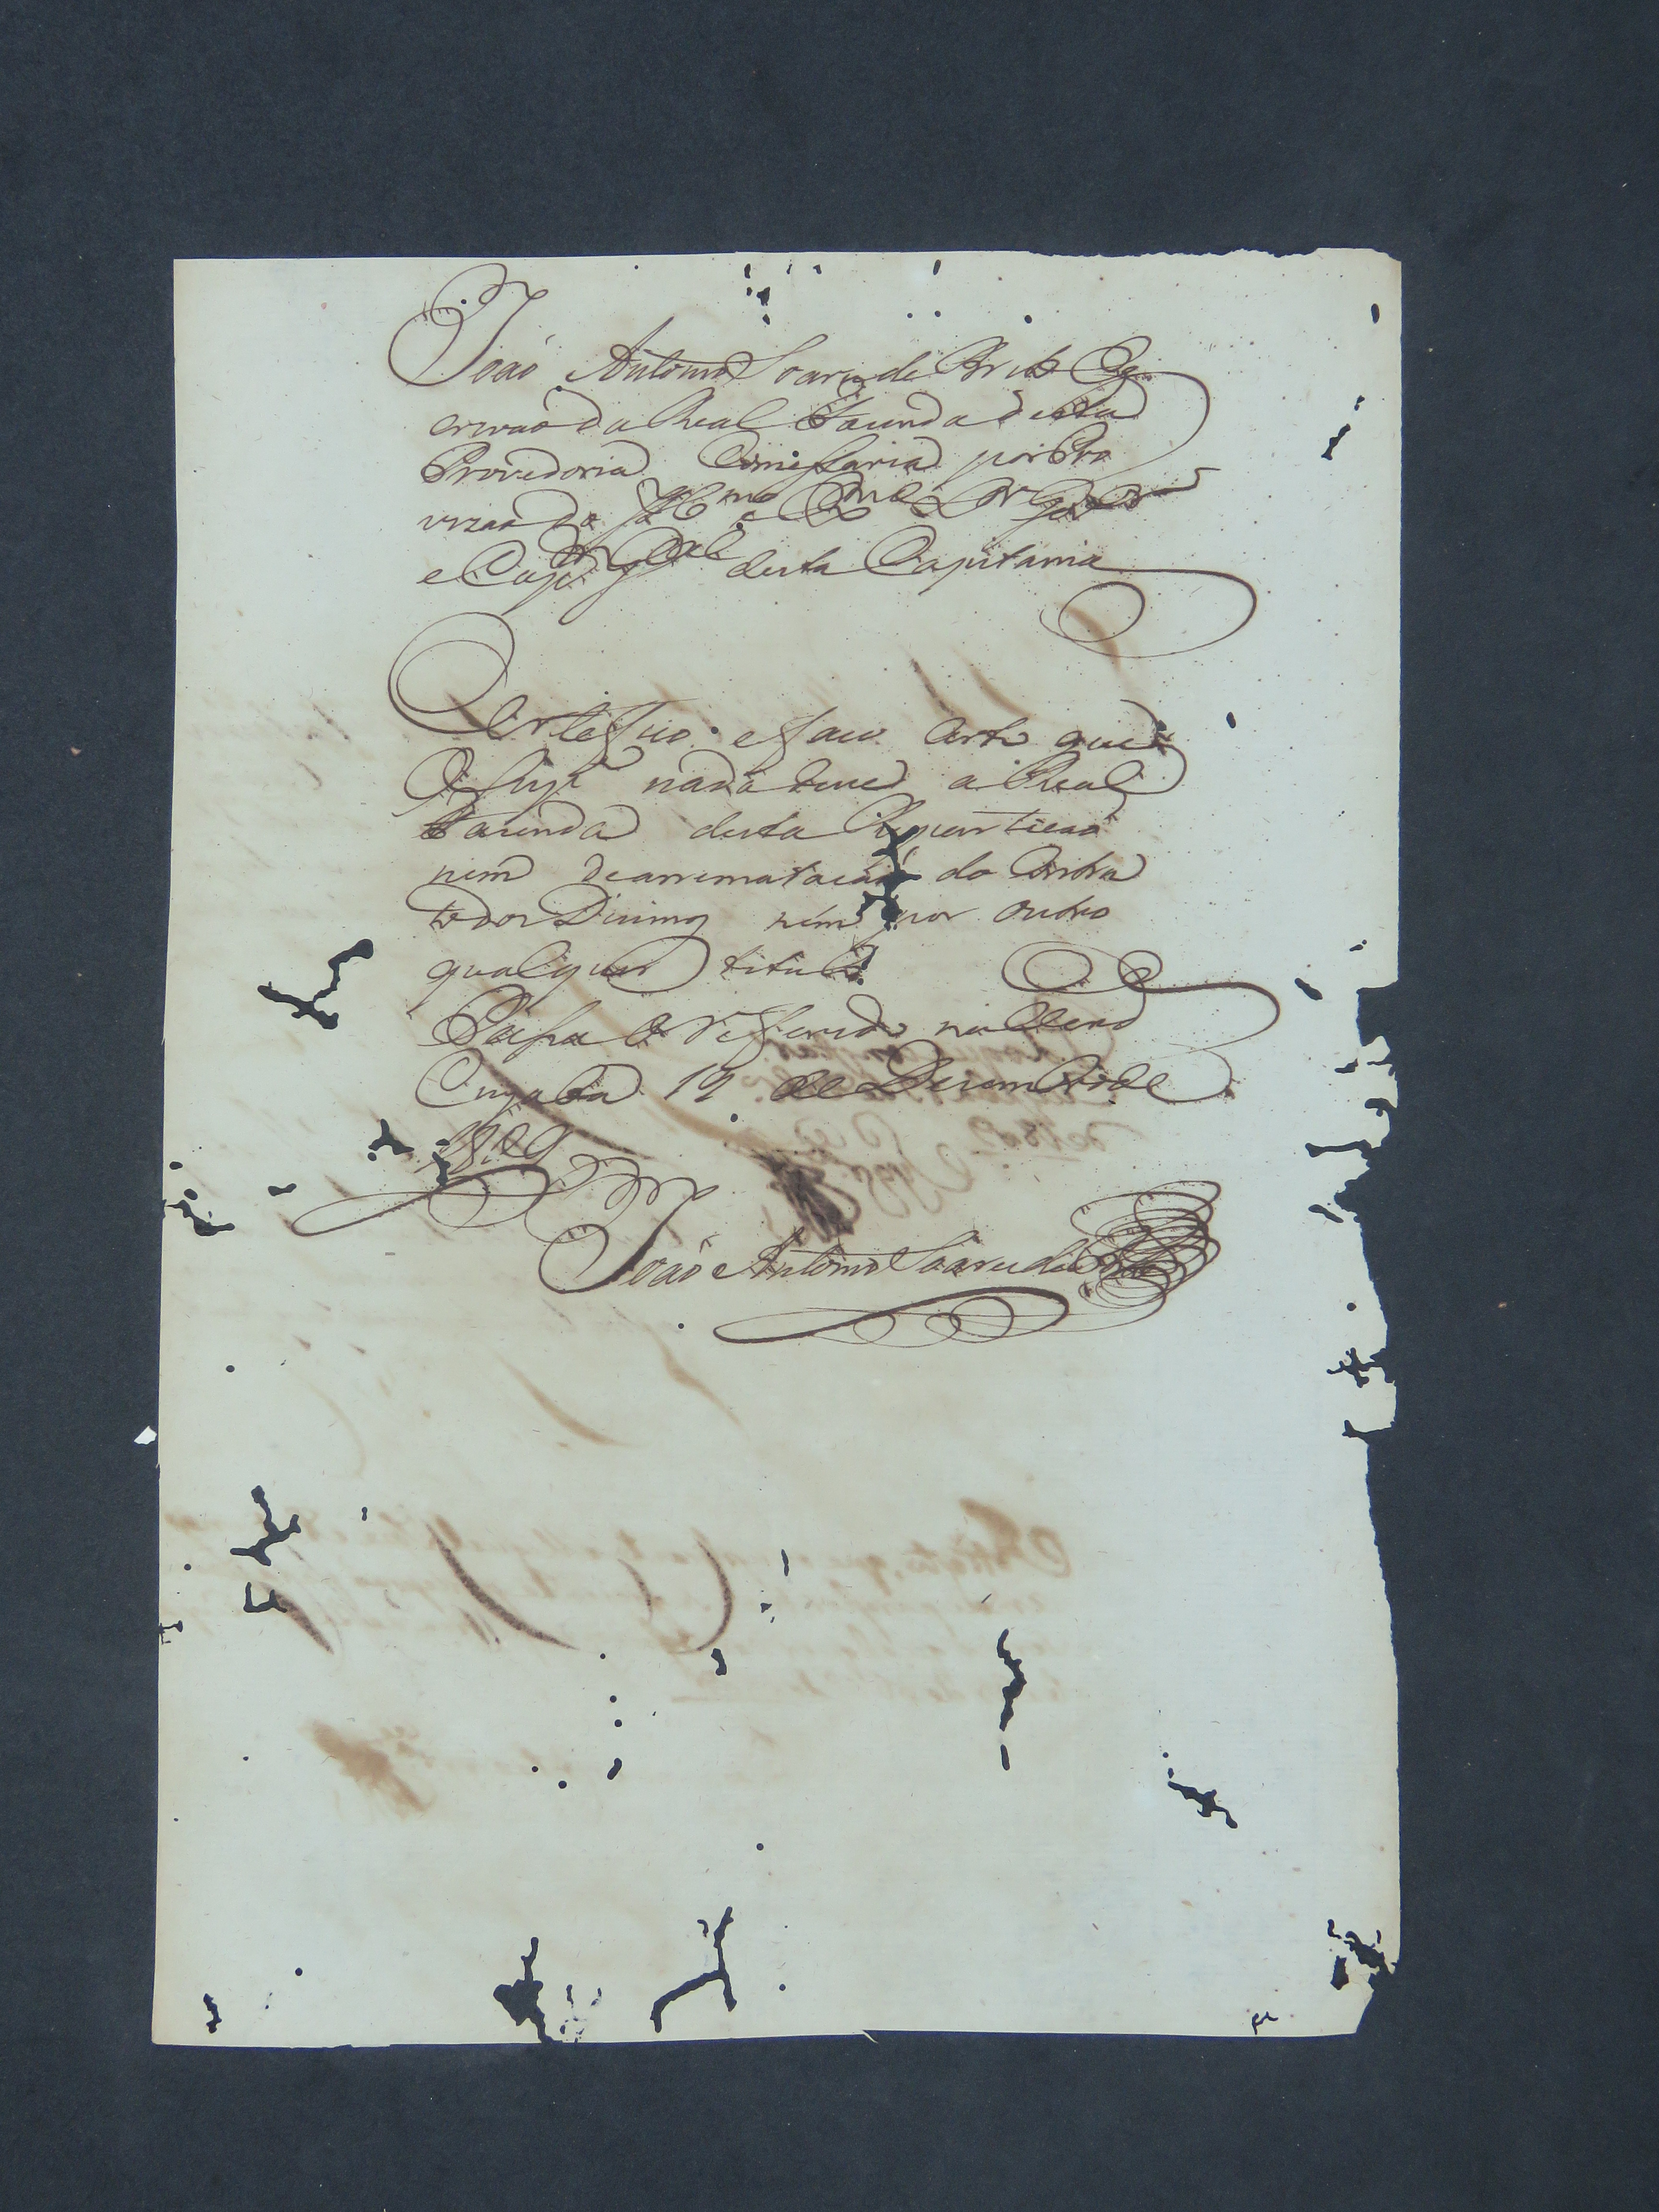 João Antonio Soares de Brito Es
crivaõ da Real Fazenda desta
Provedoria Comissaria por Pro
vizaõ do Illmo e Exmo Snr Gov.or
e Cap.m Gnal desta Capitania
Certefico e faço certo que
o Sup.e nada deve a Real
Fazenda desta Repartiçaõ
nem de arremataçaõ do Contra
to dos Dizimos nem por outro
qualquer titulo
Passa o Refferido na verd.e
Cuyaba 12 de Dezembro de
1809
João Antonio Soares de Brito